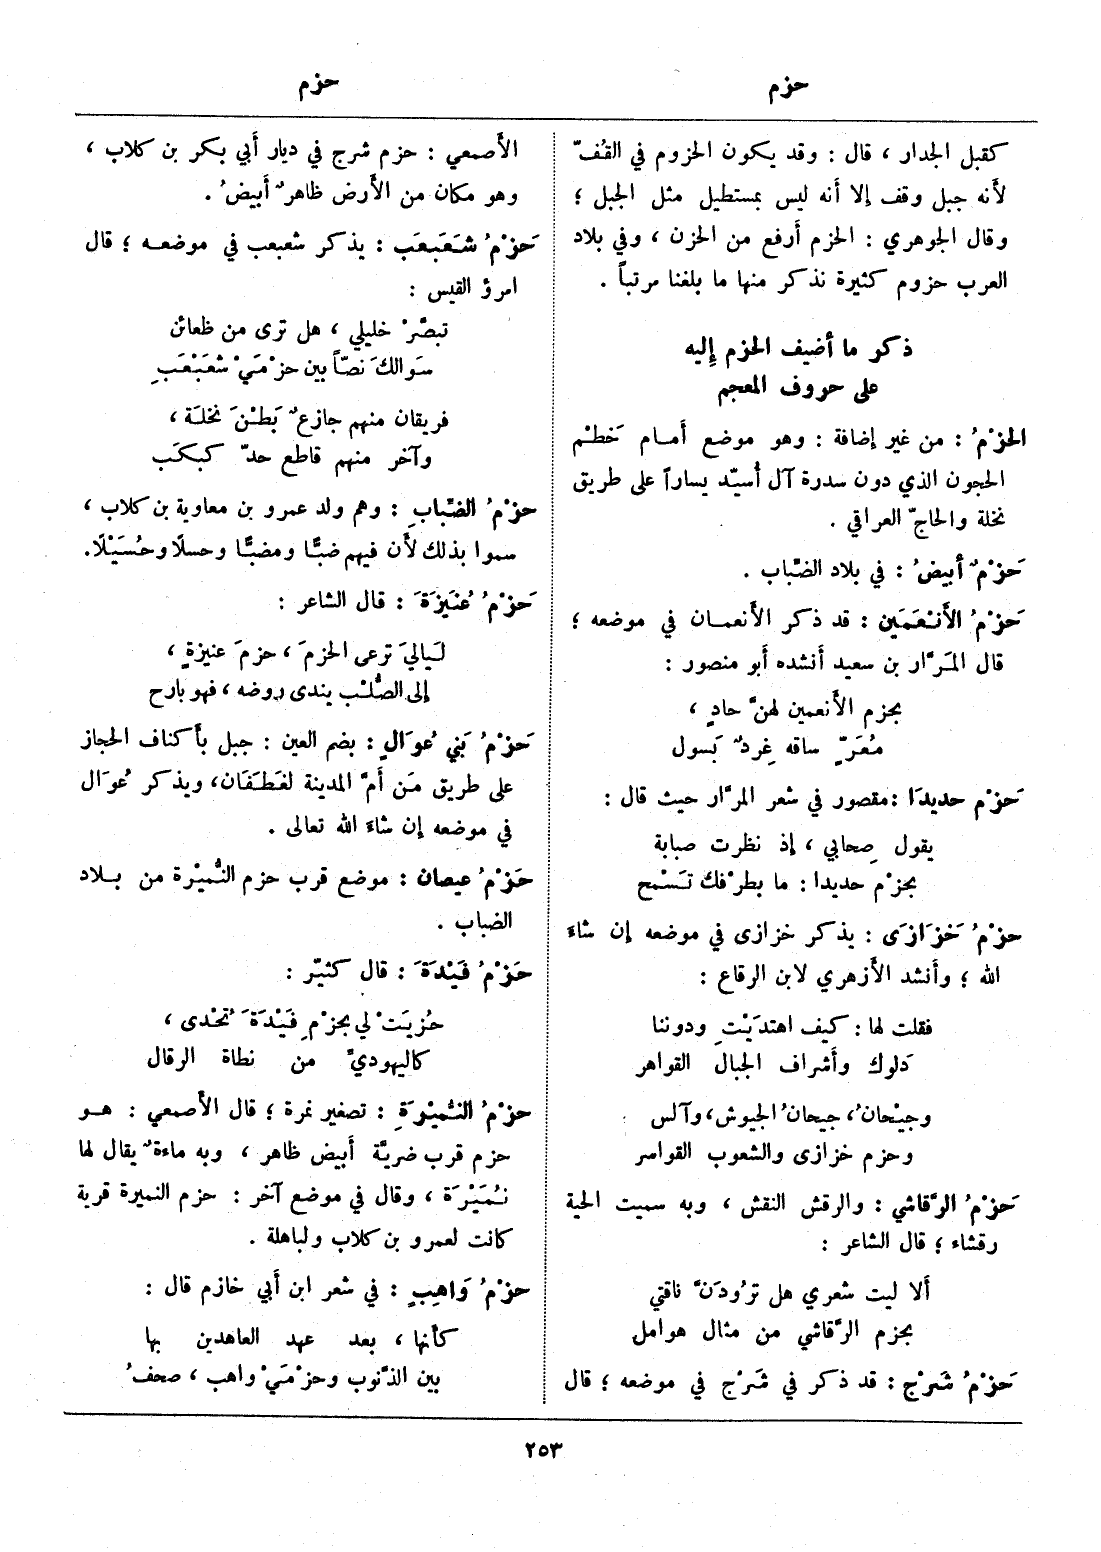 حزم
حزم
كقبل الجدار ، قال : وقد يكون الحزوم في القُفّ
لأنه جبل وقف إلا أنه ليس بمستطيل مثل الجبل ؛
وقال الجوهري : الحزم أرفع من الحزن ، وفي بلاد
العرب حزوم كثيرة نذكر منها ما بلغنا مرتباً .
ذكر ما أضيف الحزم إليه
على حروف المعجم
الحَزْمُ : من غير إضافة : وهو موضع أمام خَطْم
الحجون الذي دون سدرة آل أُسيّد يساراً على طريق
نخلة والحاجّ العراقي .
حَزْمٌ أبيضُ : في بلاد الضّباب .
حَزْمُ الأَنْعَمَين : قد ذكر الأنعمان في موضعه ؛
قال المَرَّار بن سعيد أنشده أبو منصور :
بحزم الأنعمين لهنَّ حادٍ ،
مُعَرّ ساقه غردٌ بَسول
حَزْم حديدَا : مقصور في شعر المرَّار حيث قال :
يقول صِحابي ، إذ نظرت صبابة
بحزْم حديدا : ما بطرْفك تَسْمح
حزْمُ خَزَازَى : يذكر خزازى في موضعه إن شاءَ
الله ؛ وأنشد الأزهري لابن الرقاع :
فقلت لها : كيف اهتدَيْتِ ودوننا
دَلوك وأشراف الجبال القواهر
وجيْحانُ، جيحانُ الجيوش، وآلس
وحزم خزازى والشعوب القواسر
حَزْمُ الرَّقاشي : والرقش النقش ، وبه سميت الحية
رقشاء ؛ قال الشاعر :
ألا ليت شعري هل ترُودَنَّ ناقتي
بحزم الرَّقاشي من مثال هوامل
حَزْمُ شَرْج : قد ذكر في شَرْج في موضعه ؛ قال
الأصمعي : حزم شرج في ديار أبي بكر بن كلاب ،
وهو مكان من الأرض ظاهرٌ أبيضُ .
حَزْمُ شَعَبعَب : يذكر شعبعب في موضعه ؛ قال
امرؤ القيس :
تبصَّرْ خليلي ، هل ترى من ظعائن
سَوالكَ نصّاً بين حزْمَيْ شَعَبْعَبِ
فريقان منهم جازعٌ بَطْنَ نخلَة ،
وآخر منهم قاطع حدّ كبكَب
حزْمُ الضّبابِ : وهم ولد عمرو بن معاوية بن كلاب ،
سموا بذلك لأن فيهم ضبًّا ومضبًّا وحسلًا وحُسَيْلًا.
حَزْمُ عُنَيزَةَ : قال الشاعر :
لَياليَ ترعى الحزمَ ، حزمَ عنيزةٍ ،
إلى الصُّلْب يندى روضه ، فهو بارح
حَزْمُ بَني عُوَالٍ : بضم العين : جبل بأكناف الحجاز
على طريق مَن أمَّ المدينة لغَطَفَان، ويذكر عُوَال
في موضعه إن شاءَ الله تعالى .
حَزْمُ عيصان : موضع قرب حزم النُّميْرة من بلاد
الضباب .
حَزْمُ فَيْدَةَ : قال كثيّر :
حُزيَتْ لي بحزْمِ فَيْدَةَ تُحْدى ،
كاليهوديِّ من نطاة الرقال
حزْمُ النُّميْرَةِ : تصغير نمرة ؛ قال الأصمعي : هو
حزم قرب ضريّة أبيض ظاهر ، وبه ماءةٌ يقال لها
نُمَيْرَة ، وقال في موضع آخر : حزم النميرة قرية
كانت لعمرو بن كلاب ولباهلة .
حزْمُ وَاهِبٍ : في شعر ابن أبي خازم قال :
كأنها ، بعد عهد العاهدين بها
بين الذَّنوب وحزْمَيْ واهب ، صحفُ
٢٥٣